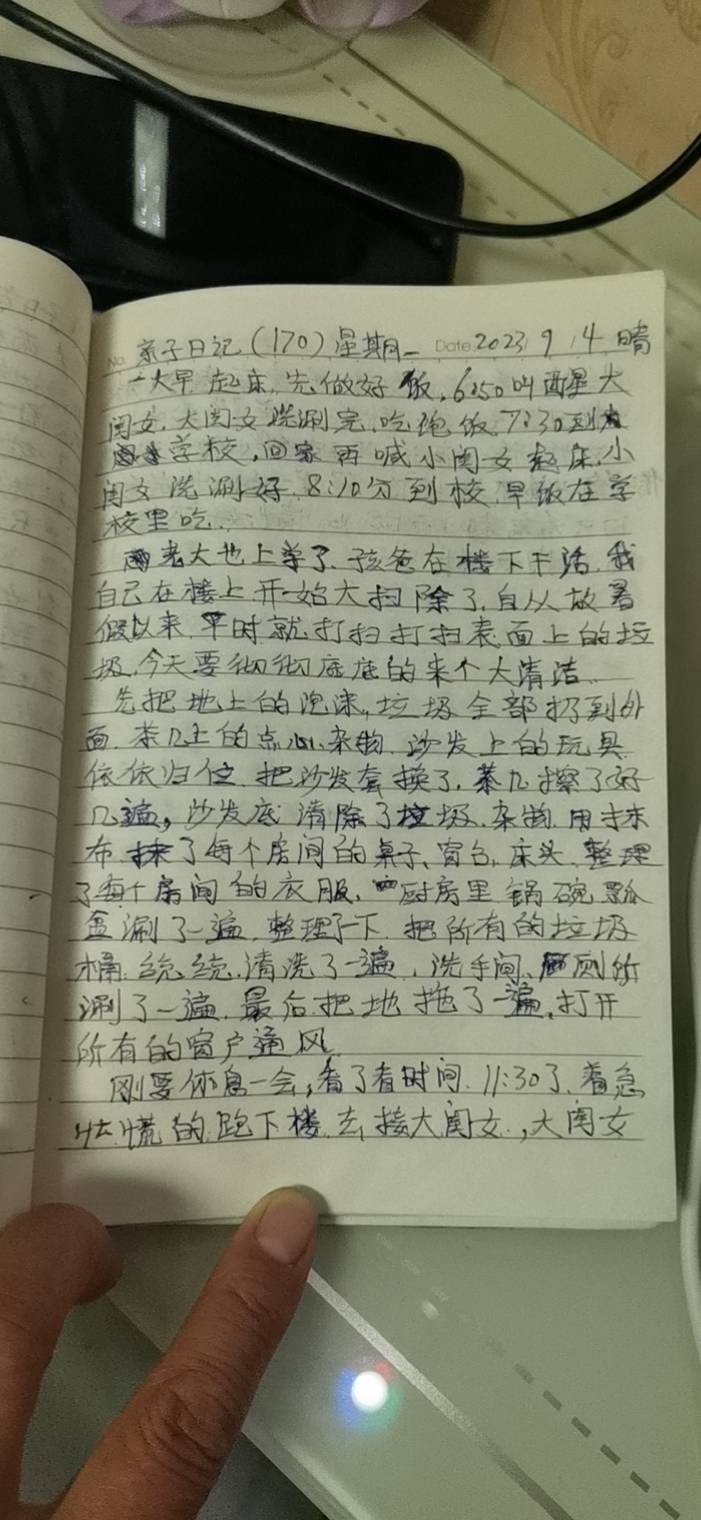 No. 亲子日记(170)星期一 Date 2023 9 4 晴
一大早起床,先做好饭,6:50叫醒大
闺女,大闺女洗涮完,吃饱饭7:30到
学校,回家再喊小闺女起床,小
闺女洗涮好,8:10分到校,早饭在学
校里吃.
老大也上学了,孩爸在楼下干活,我
自己在楼上开始大扫除了,自从放暑
假以来,平时就打扫打扫表面上的垃
圾,今天要彻彻底底的来个大清洁.
先把地上的泡沫,垃圾全部扔到外
面,茶几上的点心、杂物,沙发上的玩具
依依归位,把沙发套换了,茶几擦了好
几遍,沙发底清除了垃圾、杂物,用抹
布抹了每个房间的桌子、窗台、床头,整理
了每个房间的衣服,厨房里锅碗瓢
盆涮了一遍,整理了一下,把所有的垃圾
桶,统统,清洗了一遍,洗手间、厕所
涮了一遍,最后把地拖了一遍,打开
所有的窗户通风.
刚要休息一会,看了看时间,11:30了,着急
忙慌的跑下楼去接大闺女,大闺女